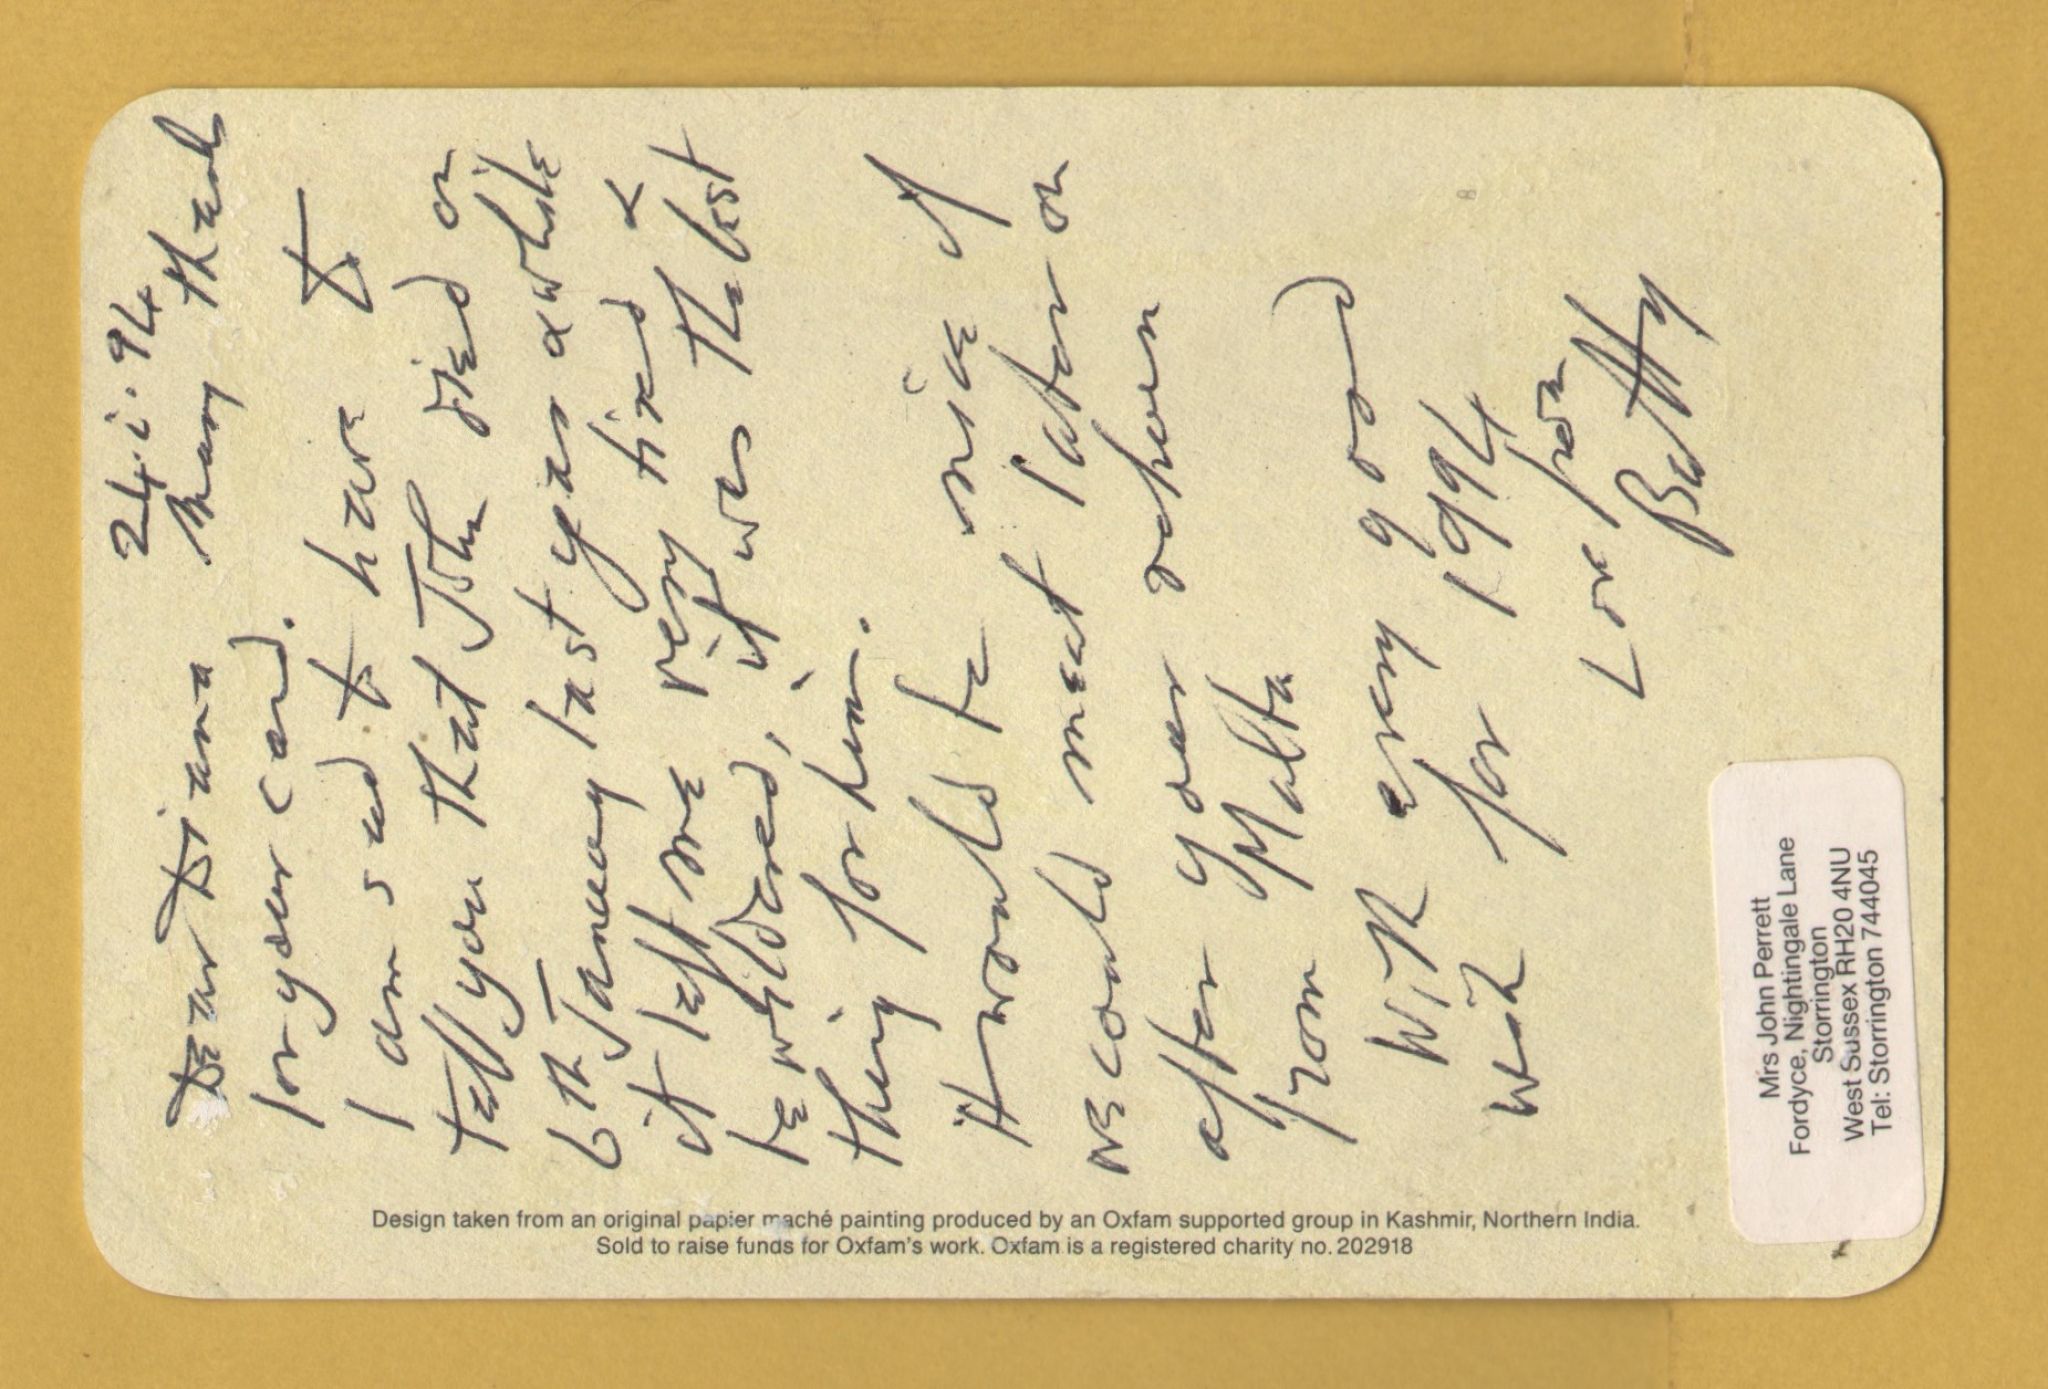 24.i.94
Dear Diana Many thanks
for your card.
I am sad to have to
tell you that John died on
6th January last year & while
it left me very tired &
bewildered, it was the best
thing for him.
It would be nice if
we could meet later on
after your return
from Malta
With every good
wish for 1994
Love from
Betty
Mrs John Perrett
Fordyce, Nightingale Lane
Storrington
West Sussex RH20 4NU
Tel: Storrington 744045
Design taken from an original papier maché painting produced by an Oxfam supported group in Kashmir, Northern India.
Sold to raise funds for Oxfam's work. Oxfam is a registered charity no. 202918